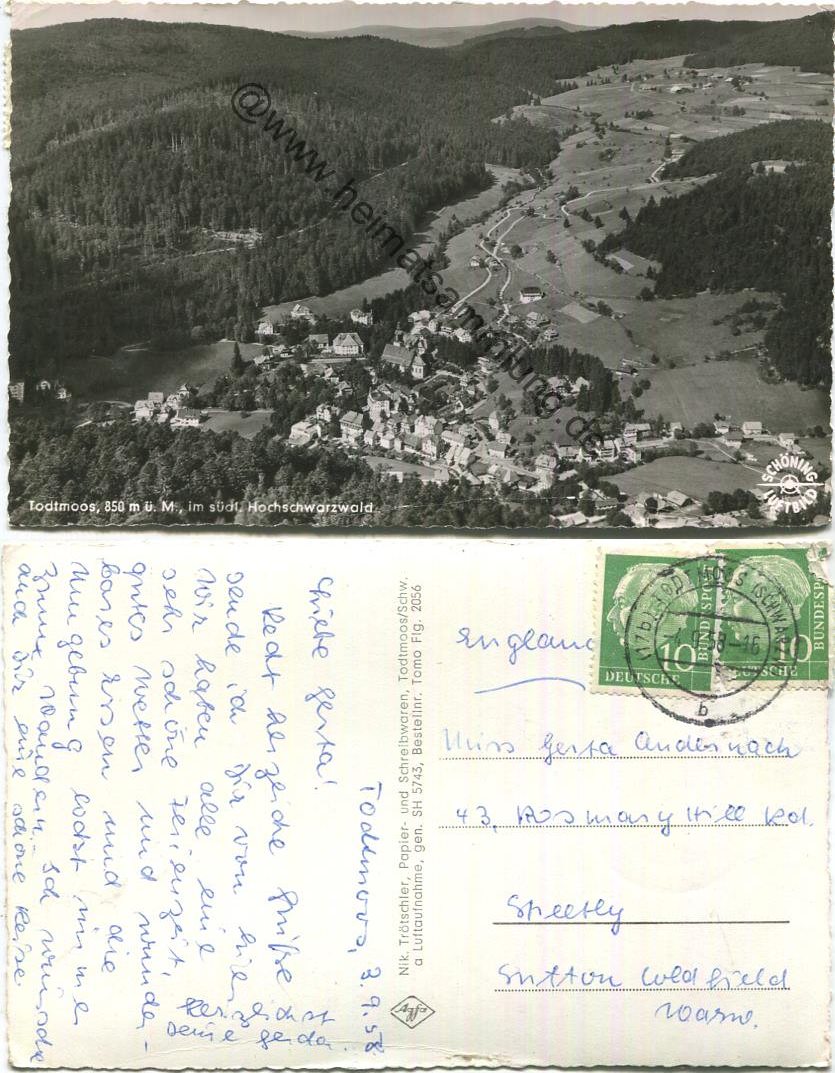 @www.heimatsammlung.de
Todtmoos, 850 m ü. M., im südl. Hochschwarzwald
SCHÖNING
LUFTBILD
Todtmoos, 3.9.58
Liebe Gerta!
Recht herzliche Grüße
sende ich Dir von hier.
Wir haben alle eine
sehr schöne Ferienzeit,
gutes Wetter und wunder-
bares Essen und die
Umgebung lockt immer
zum Wandern. Ich wünsche
auch Dir eine schöne Reise
Herzlichst
Deine Gerda.
Nik. Trötschler, Papier- und Schreibwaren, Todtmoos/Schw.
a Luftaufnahme, gen. SH 5743, Bestellnr. Tomo Flg. 2056
Agfa
England
10
DEUTSCHE
BUNDESPOST
10
DEUTSCHE
BUNDESP
(17b) TODTMOOS (SCHWARZ
b
Miss Gerta Andernach
43, Rosmary Hill Rd.
Streetly
Sutton Coldfield
Warw.